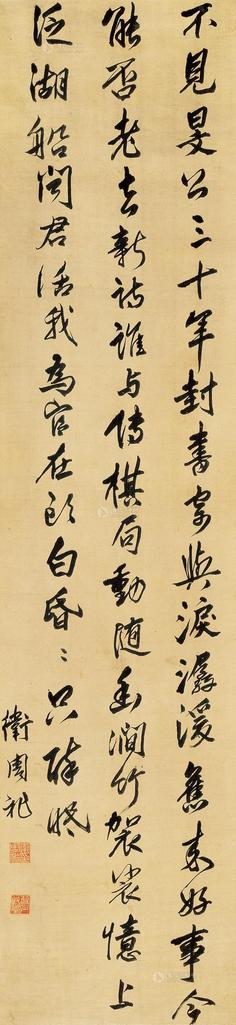 不見旻公三十年封書寄與淚潺湲舊來好事今
能否老去新詩誰与傳棋局動隨幽澗竹袈裟憶上
泛湖船聞君話我為官在頭白昏〻只醉眠
衛周祚